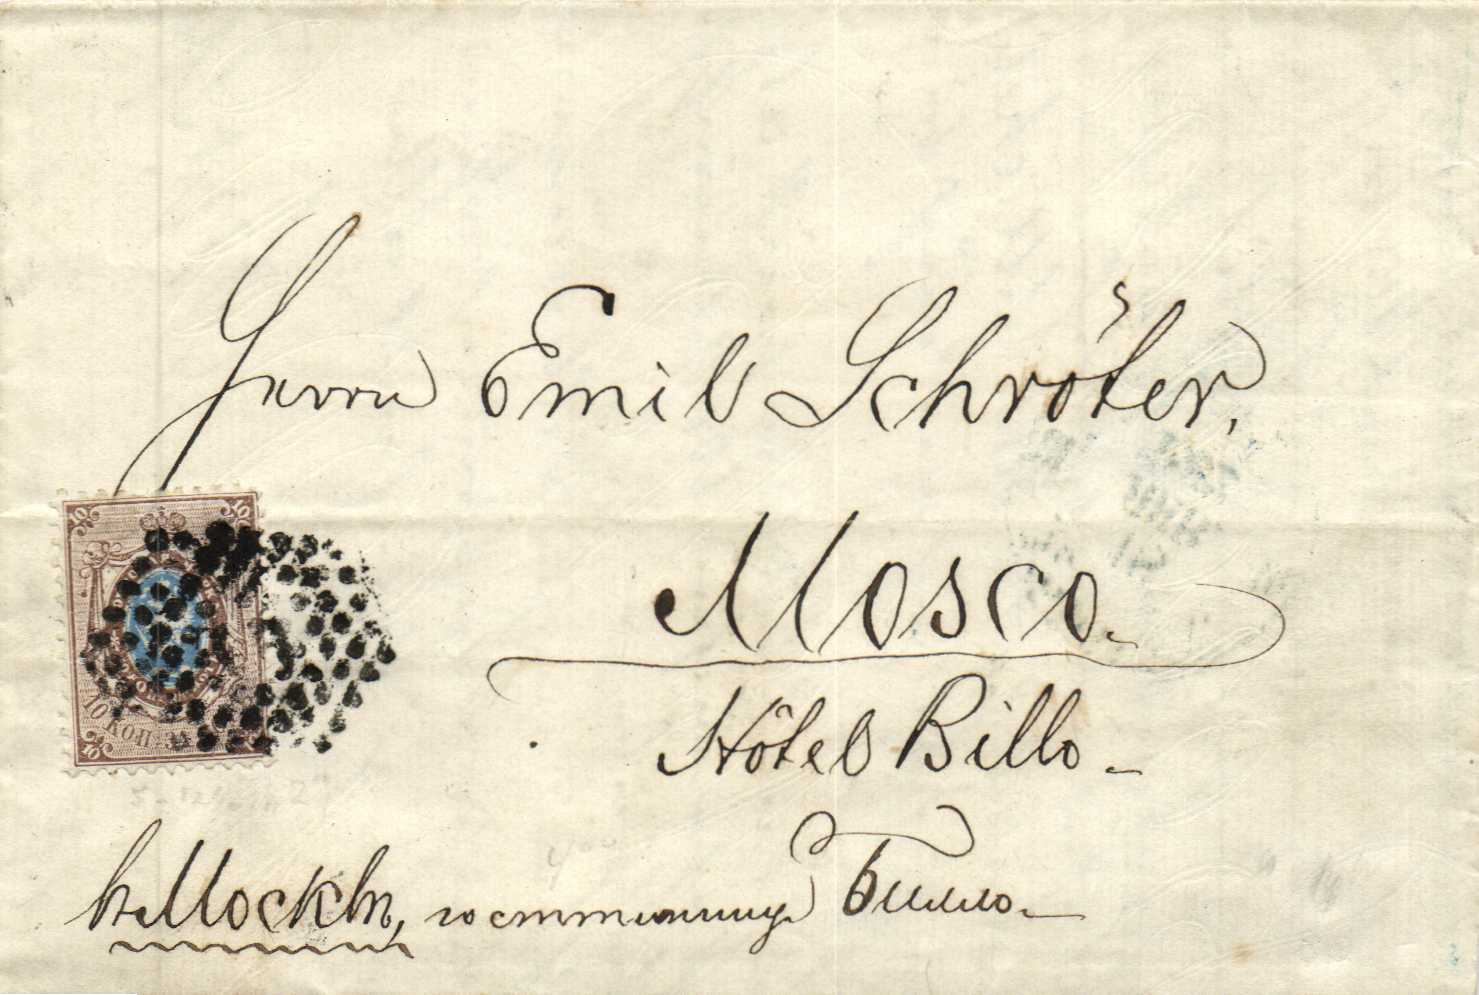 Herrn Emil Schröter,
Mosco.
Hôtel Billo
10
10
10 КОП. 
въ Москвѣ, гостинницу Билло.